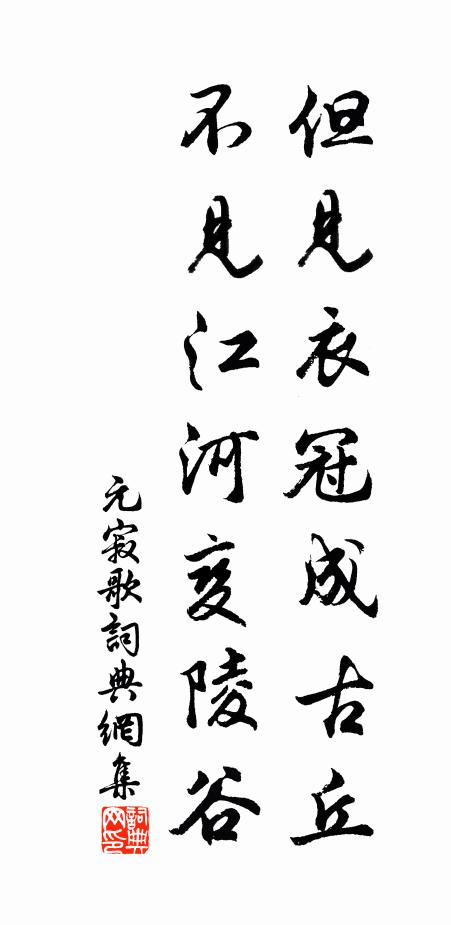 但見衣冠成古丘
不見江河變陵谷
元寂歌詞典網集
詞典
网印